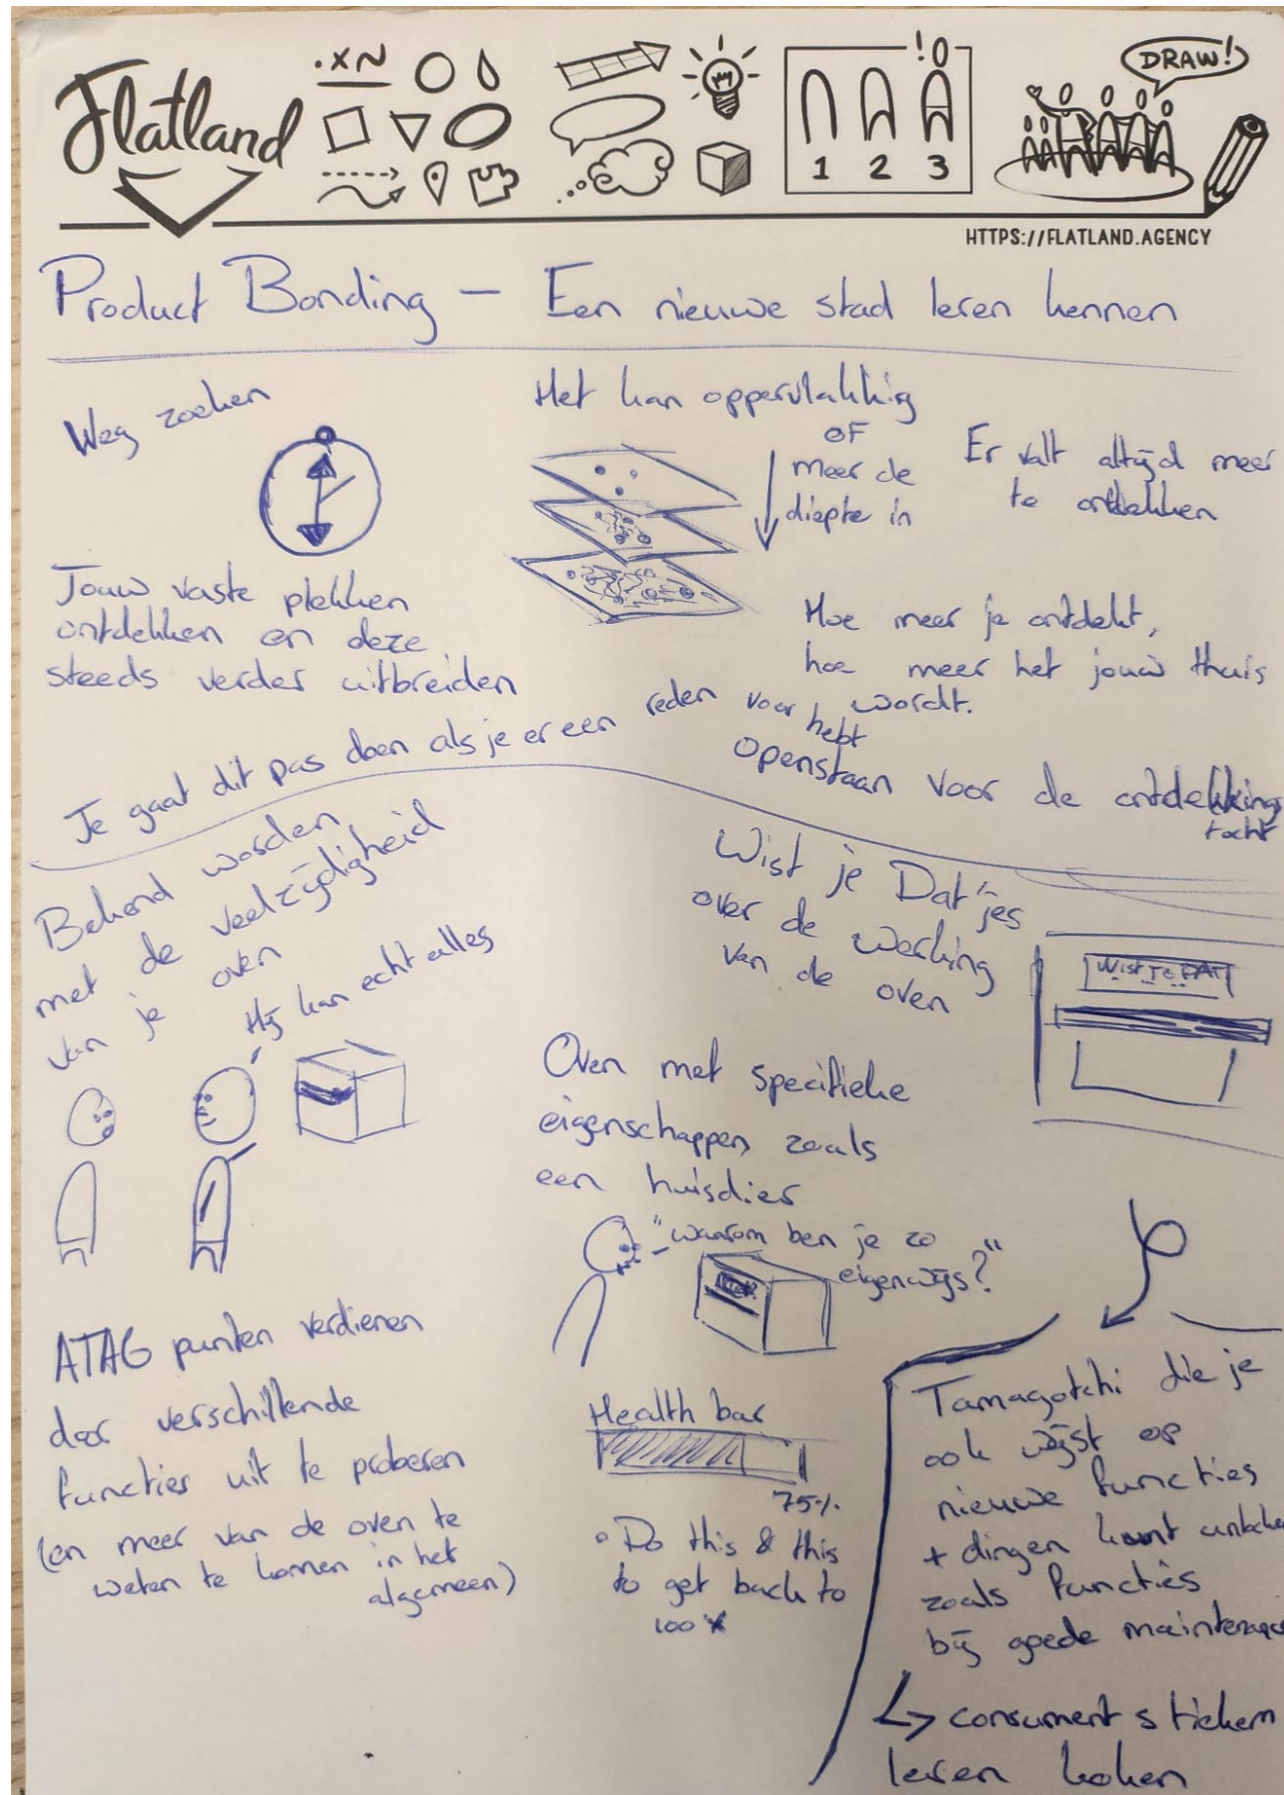 Flatland
.XN
1 2 3
DRAW!
HTTPS://FLATLAND.AGENCY
Product Bonding — Een nieuwe stad leren kennen
Weg zoeken
Jouw vaste plekken
ontdekken en deze
steeds verder uitbreiden
Het kan oppervlakkig
OF
meer de
diepte in
Er valt altijd meer
te ontdekken
Hoe meer je ontdekt,
hoe meer het jouw thuis
wordt.
Je gaat dit pas doen als je er een reden voor hebt
openstaan voor de ontdekkings
tocht
Bekend worden
met de veelzijdigheid
van je oven
Hij kan echt alles
Wist je Dat'jes
over de werking
van de oven
Wist Je DAT
Oven met specifieke
eigenschappen zoals
een huisdier
"waarom ben je zo
eigenwijs?"
ATAG punten verdienen
door verschillende
functies uit te proberen
(en meer van de oven te
weten te komen in het
algemeen)
Health bar
75%
• Do this & this
to get back to
100%
Tamagotchi die je
ook wijst op
nieuwe functies
+ dingen kunt
zoals functies
bij goede
↳ consument stiekem
leren koken